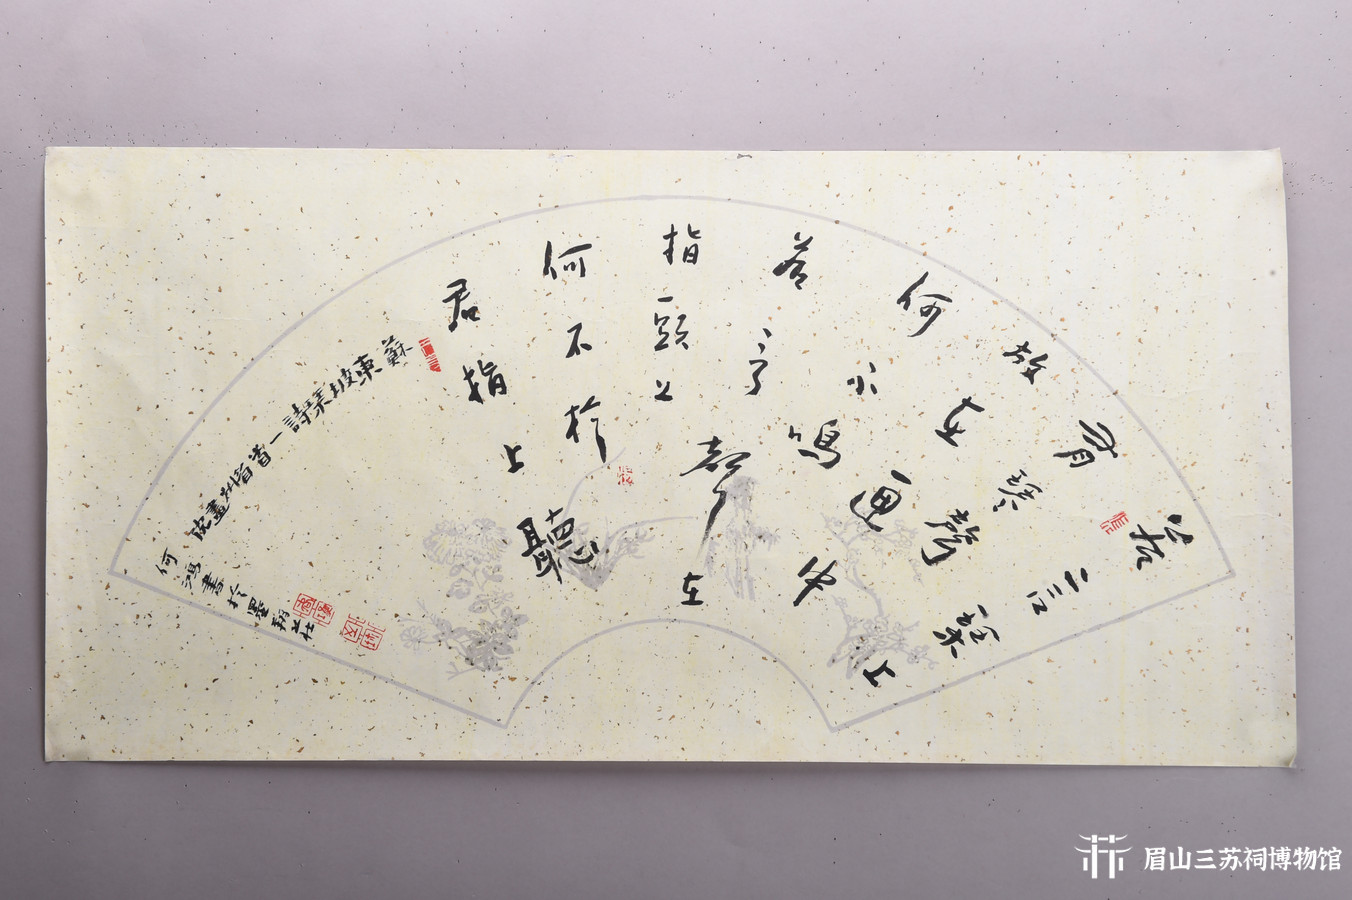 若言琴上
有琴聲
放在匣中
何不鳴
若言聲在
指頭上
何不於
君指上聽
蘇東坡琴詩一首眉州畫院
何鴻書於墨翔莊
眉山三苏祠博物馆